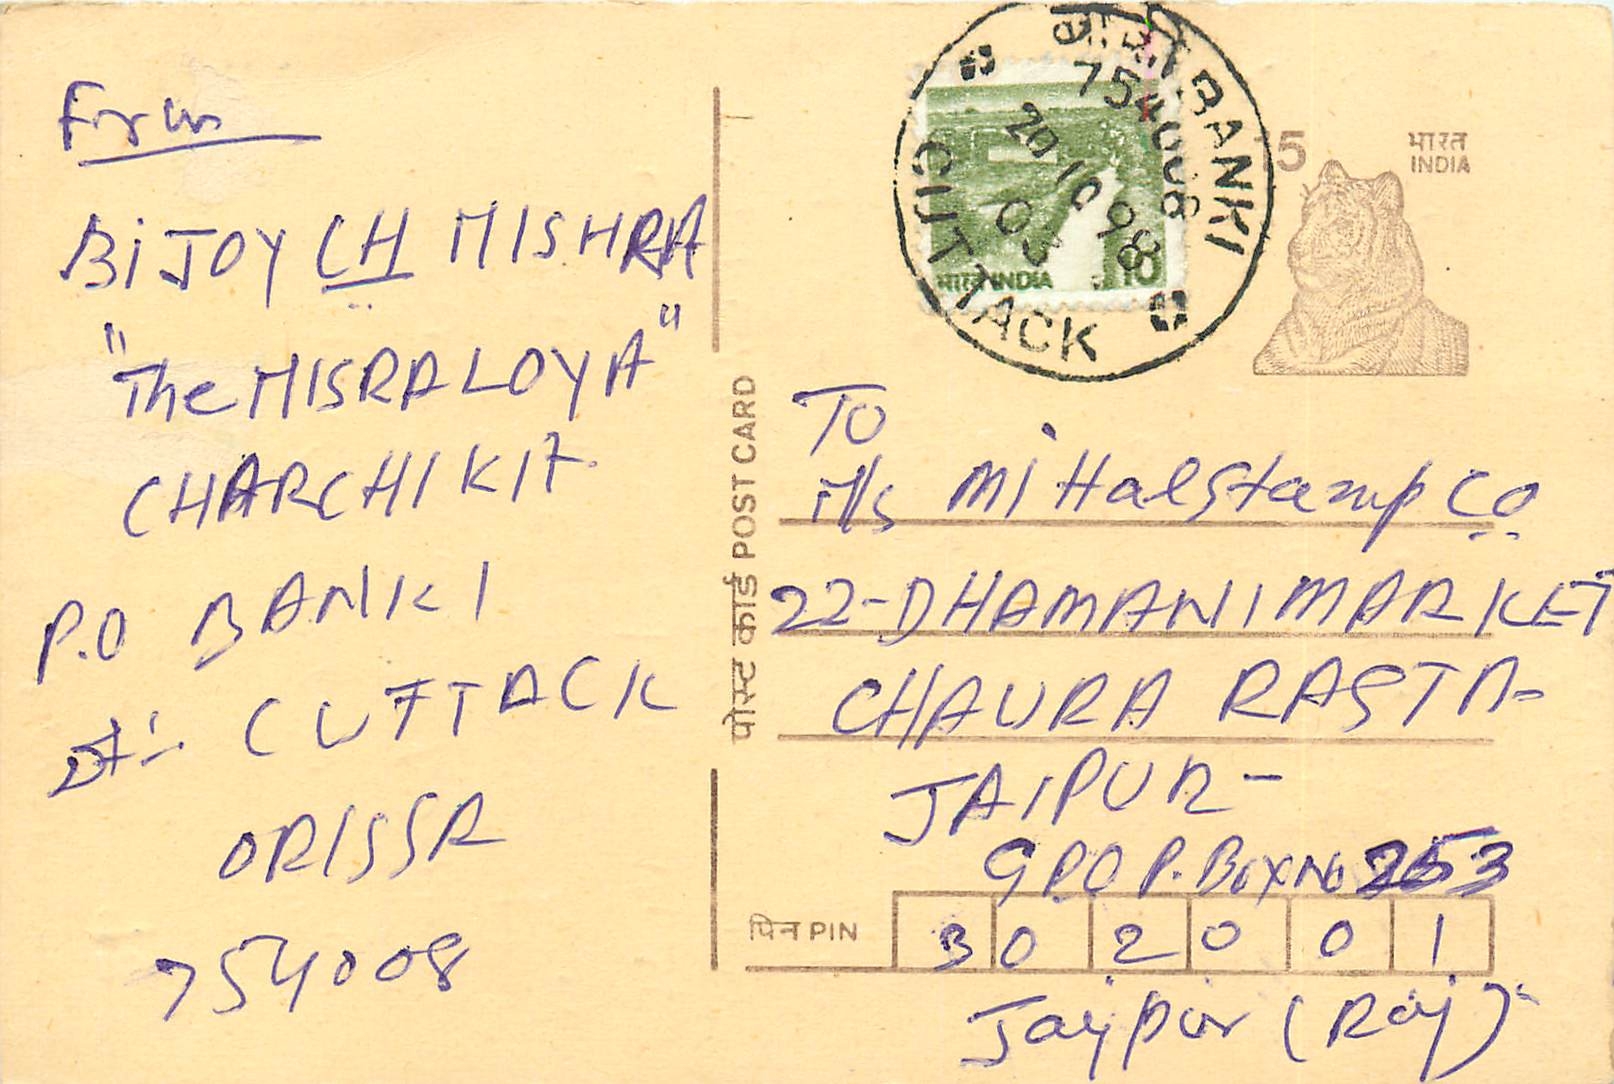 From
BIJOY CH MISHRA
"The MISRALOYA"
CHARCHIKA
P.O BANKI
Dt:- CUTTACK
ORISSA
754008
पोस्ट कार्ड POST CARD
BANKI
754008
20 10 98
CUTTACK
भारत INDIA
10
15
भारत
INDIA
TO
M/s Mittal Stamp Co
22-DHAMANI MARKET
CHAURA RASTA-
JAIPUR-
GPO P. Box No 253
पिन PIN 302001
Jaypur (Raj)